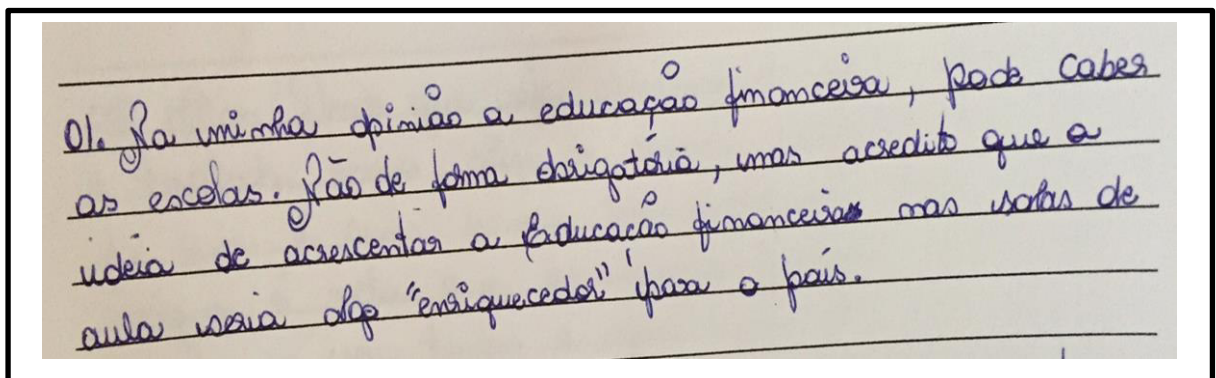 01. Na minha opinião a educação financeira, pode caber
as escolas. Não de forma obrigatória, mas acredito que a
ideia de acrescentar a Educação financeira nas salas de
aula seria algo "enriquecedor" para o país.